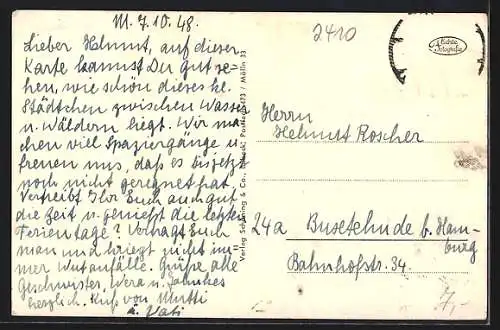 M. 7.10.48.
Lieber Helmut, auf dieser
Karte kannst Du gut se-
hen, wie schön dieses kl.
Städtchen zwischen Wasser
u. Wäldern liegt. Wir ma-
chen viel Spaziergänge u.
freuen uns, daß es bis jetzt
noch nicht geregnet hat.
Vertreibt Ihr Euch auch gut
die Zeit u. genießt die letzten
Ferientage? Vertragt Euch
man und kriegt nicht im-
mer Wutanfälle. Grüße alle
Geschwister, Wera u. Tante
herzlich. Kuß von Mutti
u. Vati
Verlag Schöning & Co., Lübeck
Mölln 33
2410
Echte
Fotografie
Herrn
Helmut Roscher
24a Buxtehude b. Ham-
burg
Bahnhofstr. 34.
7,-